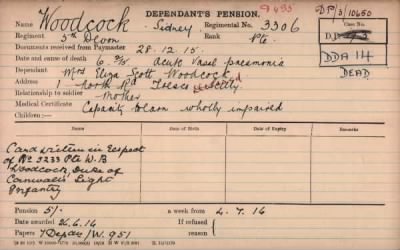 DEPENDANT'S PENSION.
9435
DP/3/10650
Name Woodcock, Sidney Regimental No. 3306
Regiment 5th Dcorn Rank Pte
Case No.
Documents received from Paymaster 28.12.15.
DDA 114
Date and cause of death acute pneumonia
DEAD
Dependant Mrs Eliza Scott Woodcock
Address 1 North Rd Tresco
Relationship to soldier Mother
Medical Certificate Capacity to earn wholly impaired
Children:—
Name Date of Birth Date of Expiry
Card written in respect
of No 3233 Pte W.B
Woodcock, Duke of
Cornwall's Light
Infantry
Pension 5/- a week from 4.7.16
Date awarded 26.6.16 If refused
Papers 7/Depen/W.951 reason